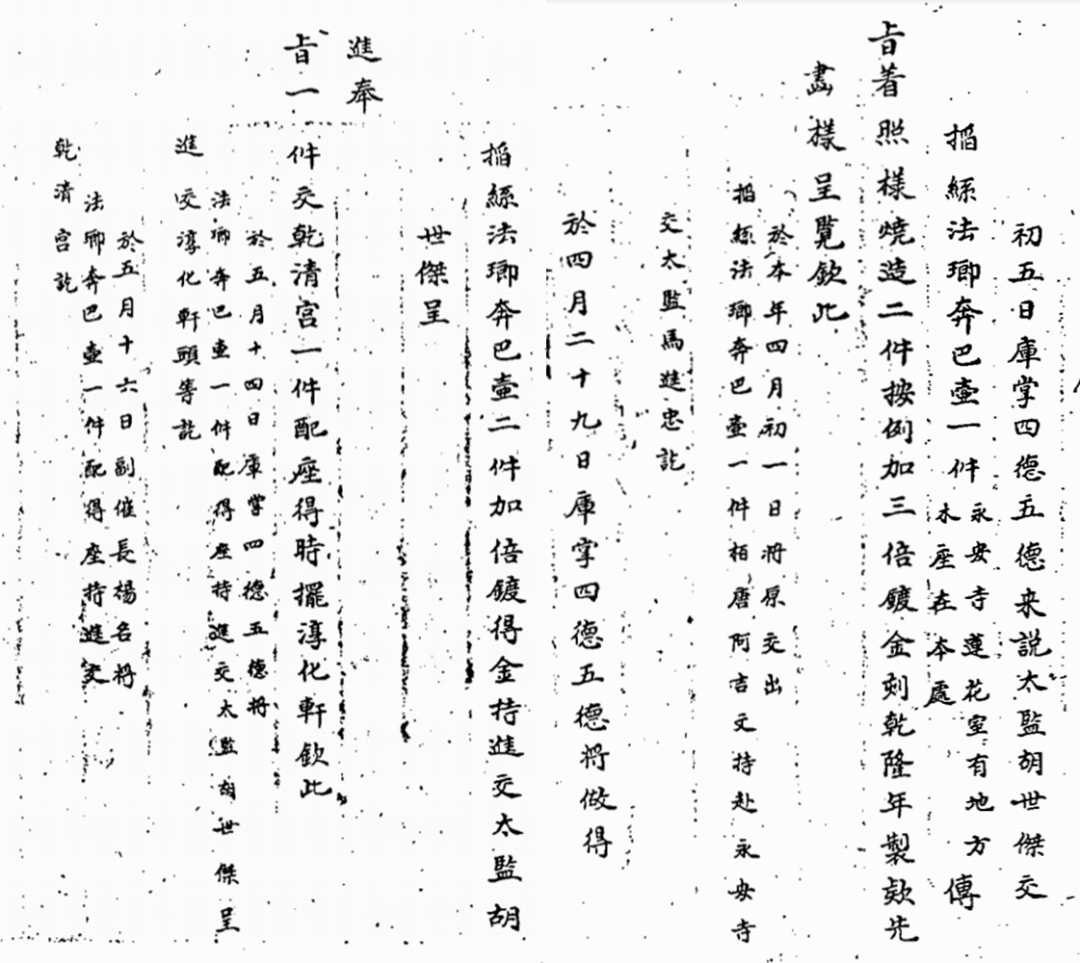 初五日庫掌四德五德来説太監胡世傑交
掐絲法瑯奔巴壷一件永安寺蓮花室有地方木座在本處傳
旨著照樣燒造二件按例加三倍鍍金刻乾隆年製欵先
畵樣呈覽欽此
於本年四月初一日将原交出
掐絲法瑯奔巴壷一件栢唐阿吉文持赴永安寺
交太監馬進忠訖
於四月二十九日庫掌四德五德将做得
掐絲法瑯奔巴壷二件加倍鍍得金持進交太監胡
世傑呈
進奉
旨一件交乾清宫一件配座得時擺淳化軒欽此
於五月十四日庫掌四德五德将
法瑯奔巴壷一件配得座持進交太監胡世傑呈
進交淳化軒頭等訖
於五月十六日副催長楊名将
法瑯奔巴壷一件配得座持進交
乾清宫訖